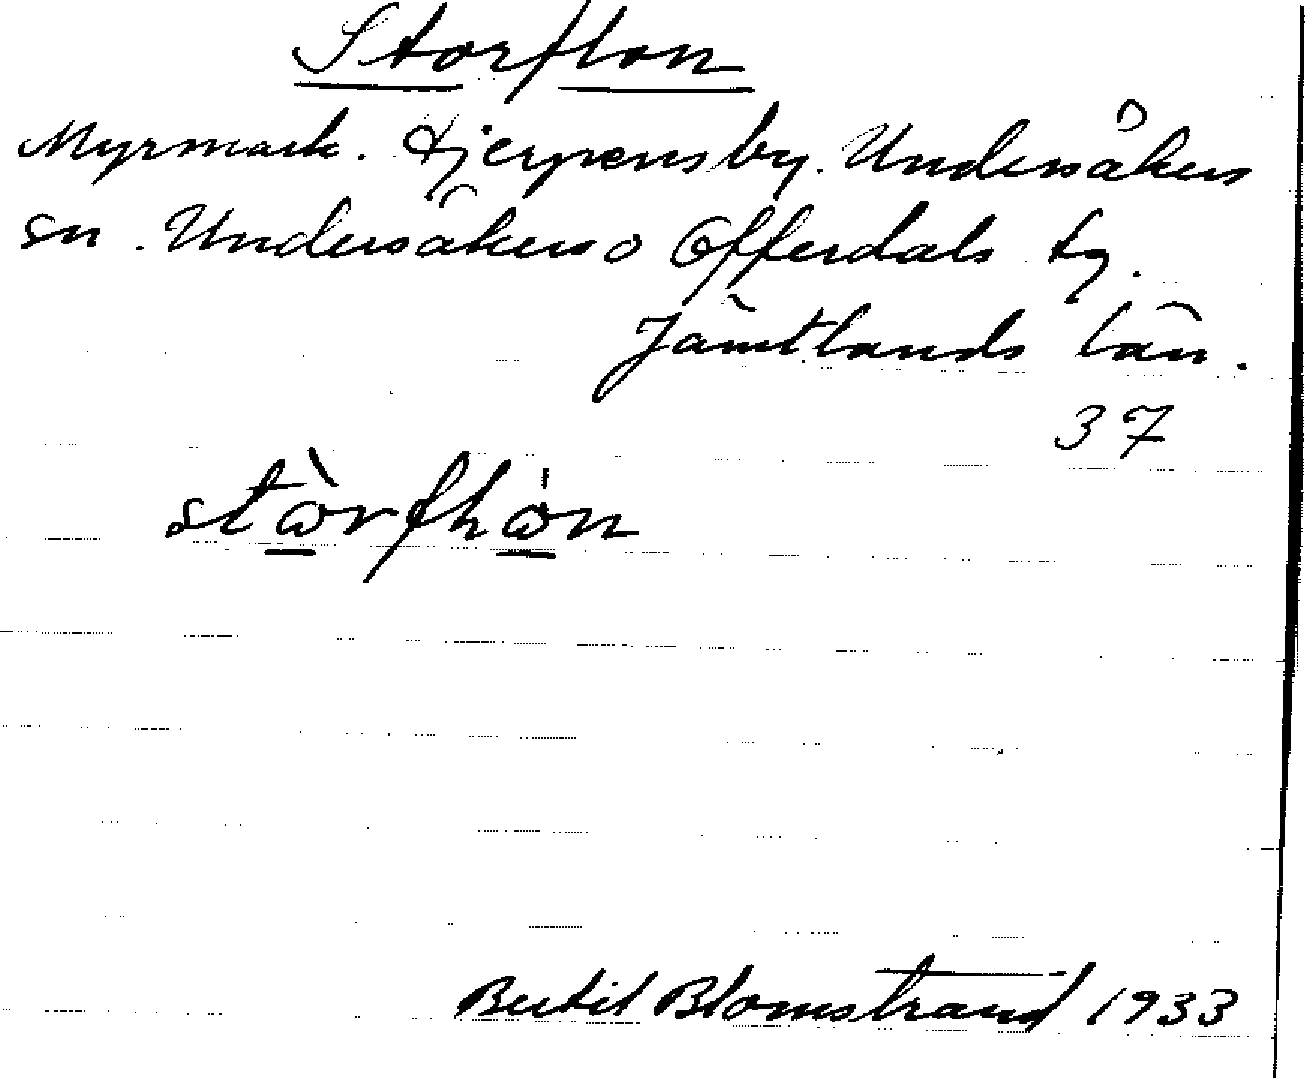 Storflon
Myrmark. Hjerpens by. Undersåkers
sn. Undersåkers o Offerdals tg.
Jämtlands län.
37
Bertil Blomstrand 1933